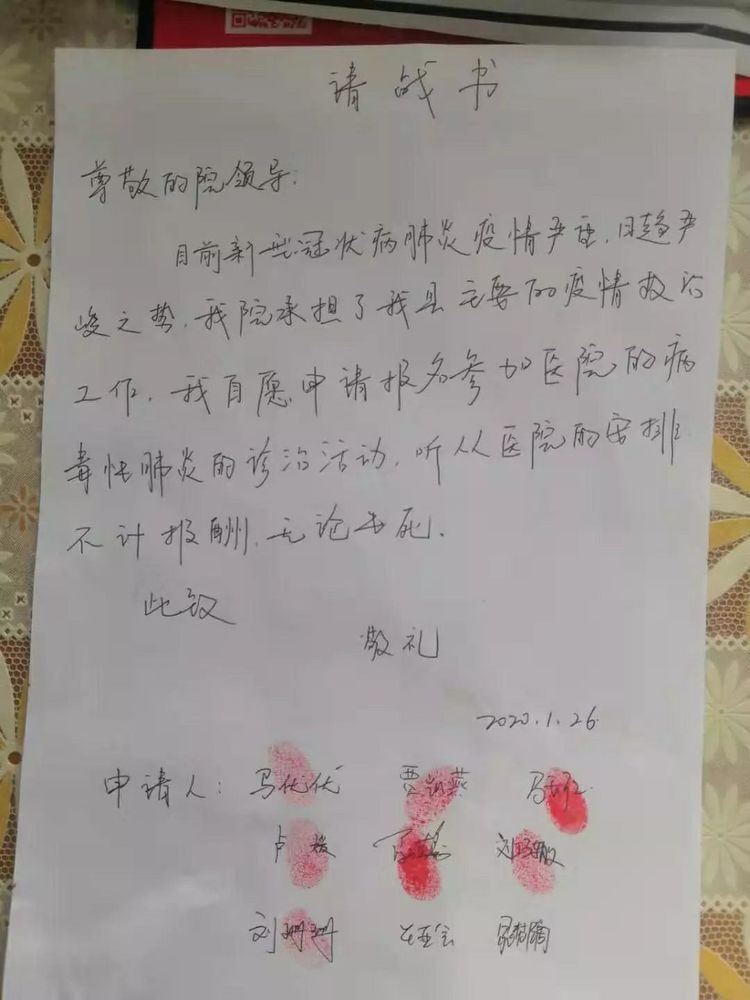 请战书
尊敬的院领导:
目前新型冠状病肺炎疫情严重,日趋严
峻之势,我院承担了我县主要的疫情救治
工作,我自愿申请报名参加医院的病
毒性肺炎的诊治活动,听从医院的安排
不计报酬,无论生死.
此致
敬礼
2020.1.26.
申请人: 马优优
卢
刘珊珊